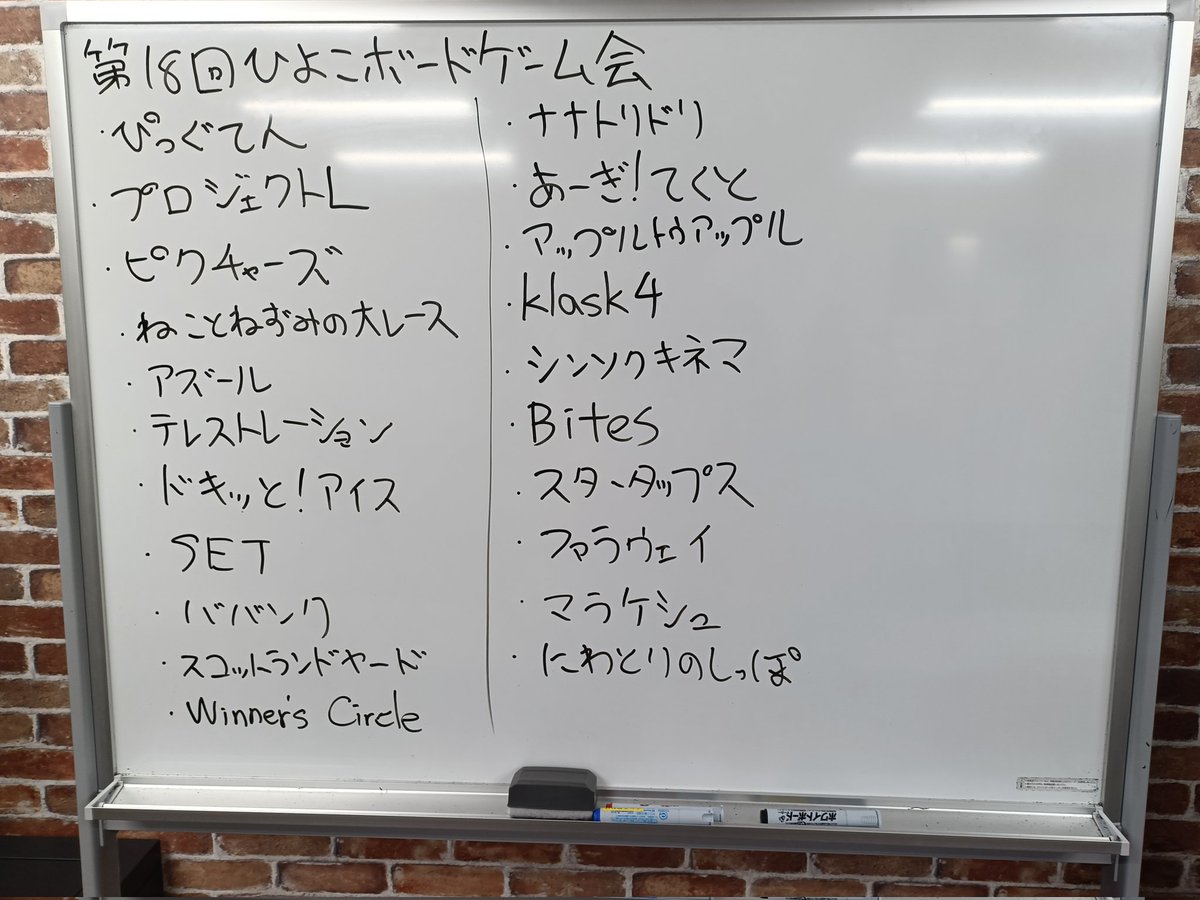 第18回ひよこボードゲーム会
・ぴっぐてん
・プロジェクトL
・ピクチャーズ
・ねことねずみの大レース
・アズール
・テレストレーション
・ドキッと!アイス
・SET
・ババンク
・スコットランドヤード
・Winner's Circle
・ナナトリドリ
・あーぎ!てくと
・アップルトゥアップル
・klask4
・シンソクキネマ
・Bites
・スタータップス
・ファラウェイ
・マラケシュ
・にわとりのしっぽ
ホワイトボード